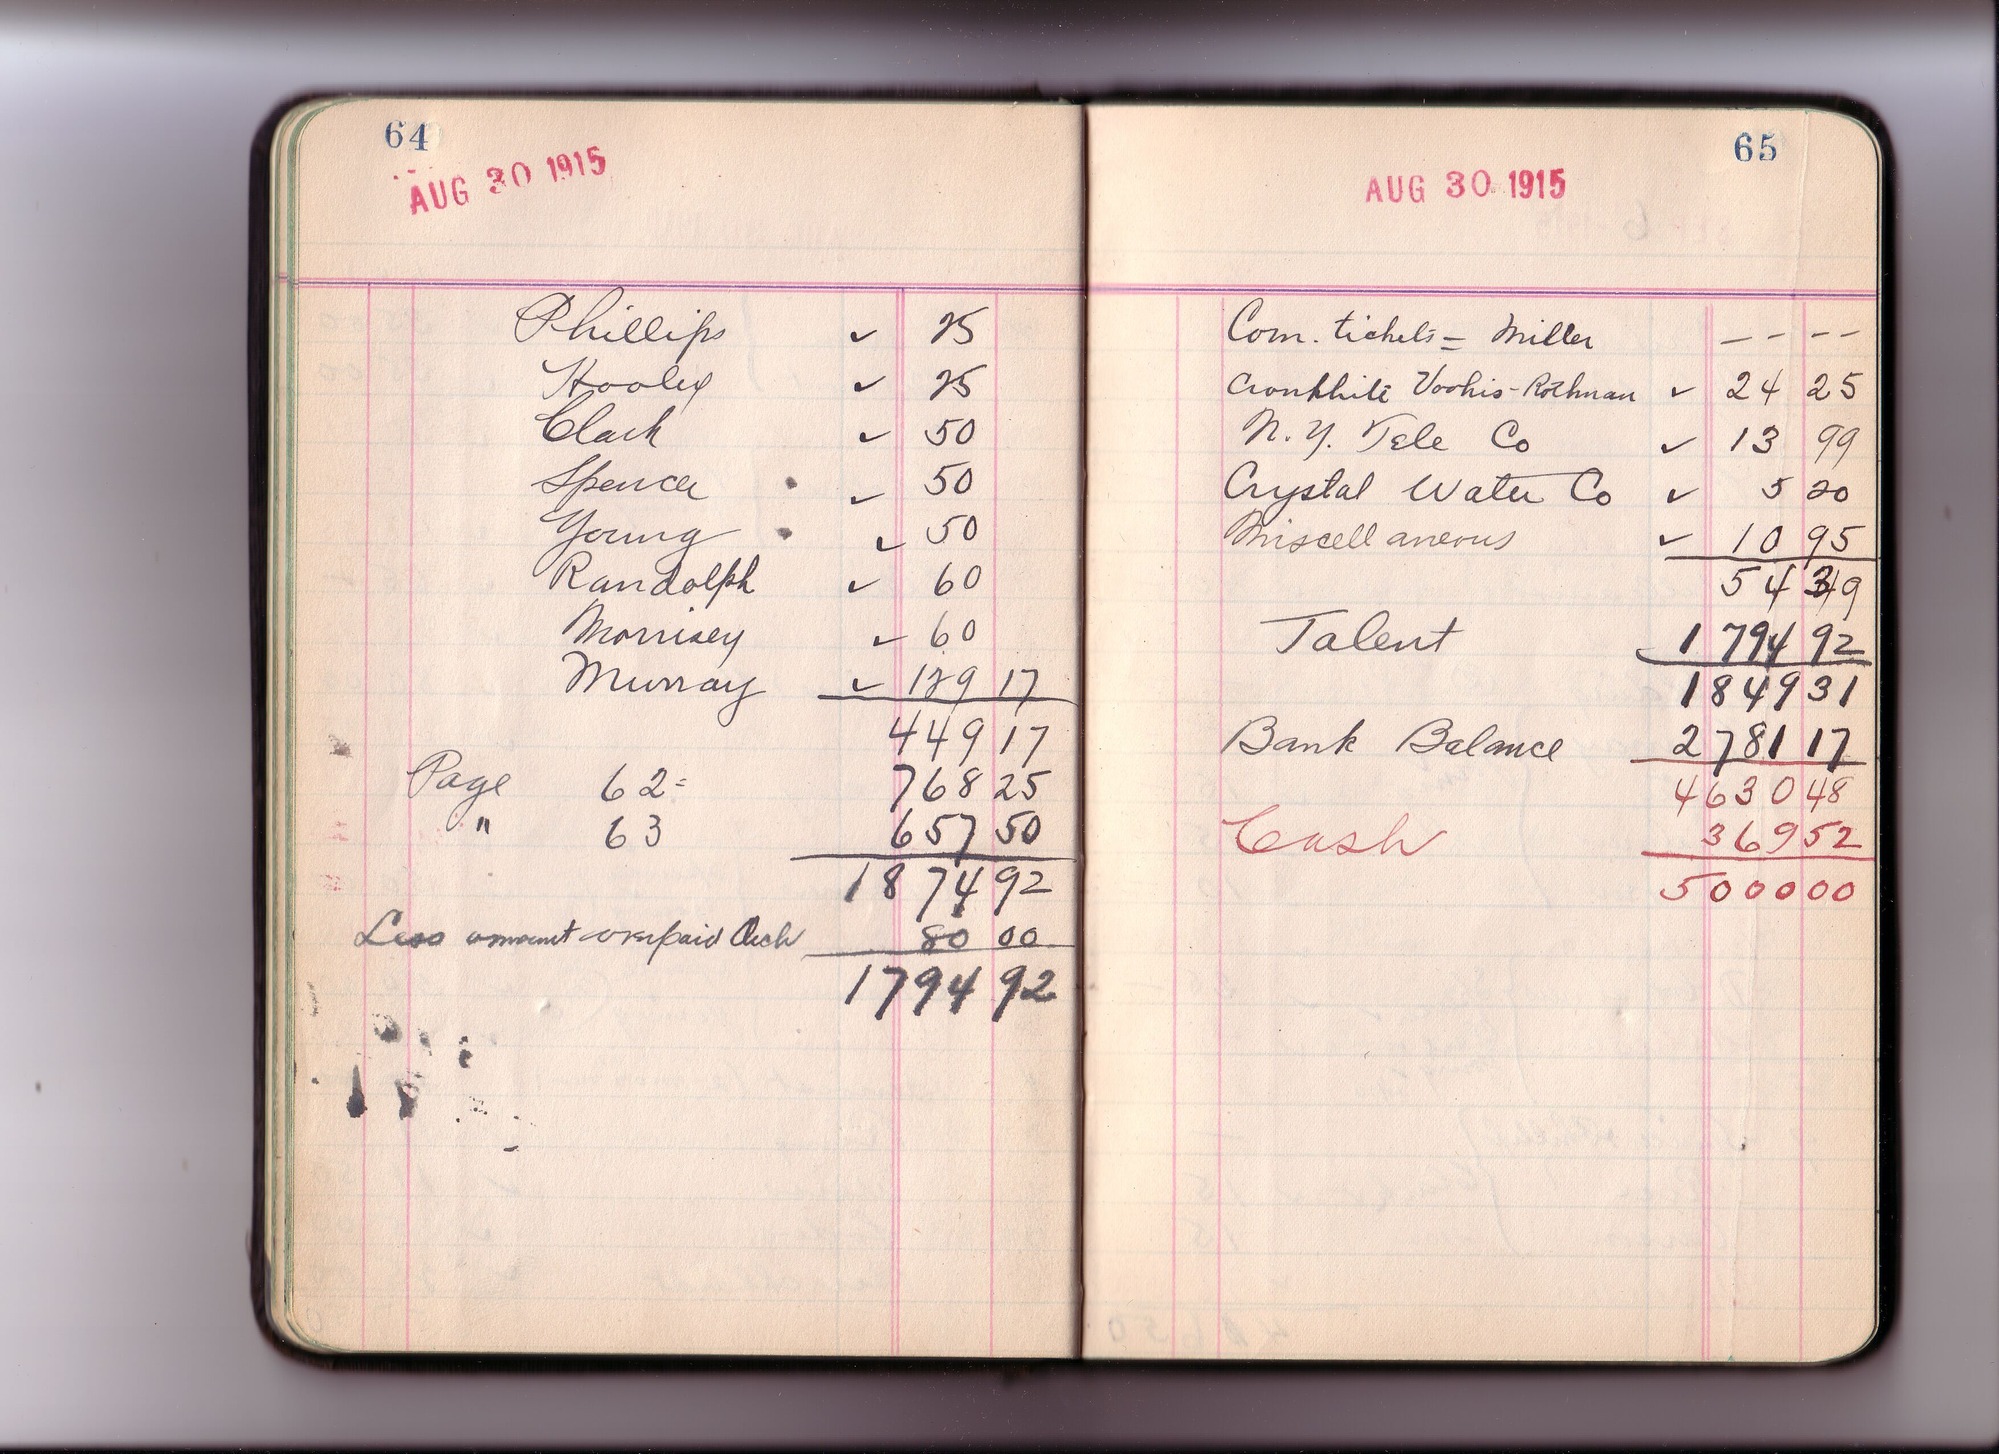 64
AUG 30 1915
Phillips ✓ 25
Hooley ✓ 25
Clark ✓ 50
Spence ✓ 50
Young ✓ 50
Randolph ✓ 60
Morrisey ✓ 60
Murray ✓ 129 17
449 17
Page 62= 768 25
" 63 657 50
1874 92
Less amount overpaid 80 00
1794 92
65
AUG 30 1915
Com. tickets = Miller – – – –
Cronkhite Voohis-Rothman ✓ 24 25
N.Y. Tele Co ✓ 13 99
Crystal Water Co ✓ 5 20
Miscellaneous ✓ 10 95
54 39
Talent 1794 92
1849 31
Bank Balance 2781 17
4630 48
Cash 369 52
5000 00